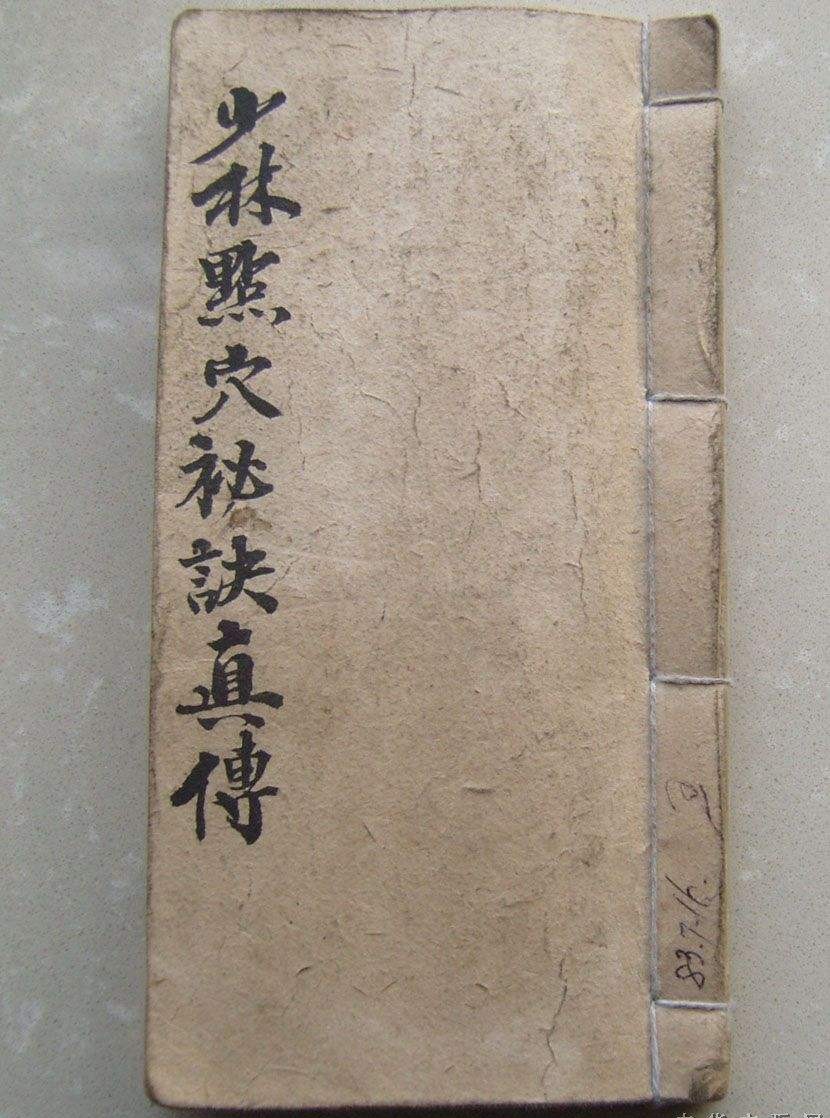 少林點穴祕訣真傳
83.7.16.